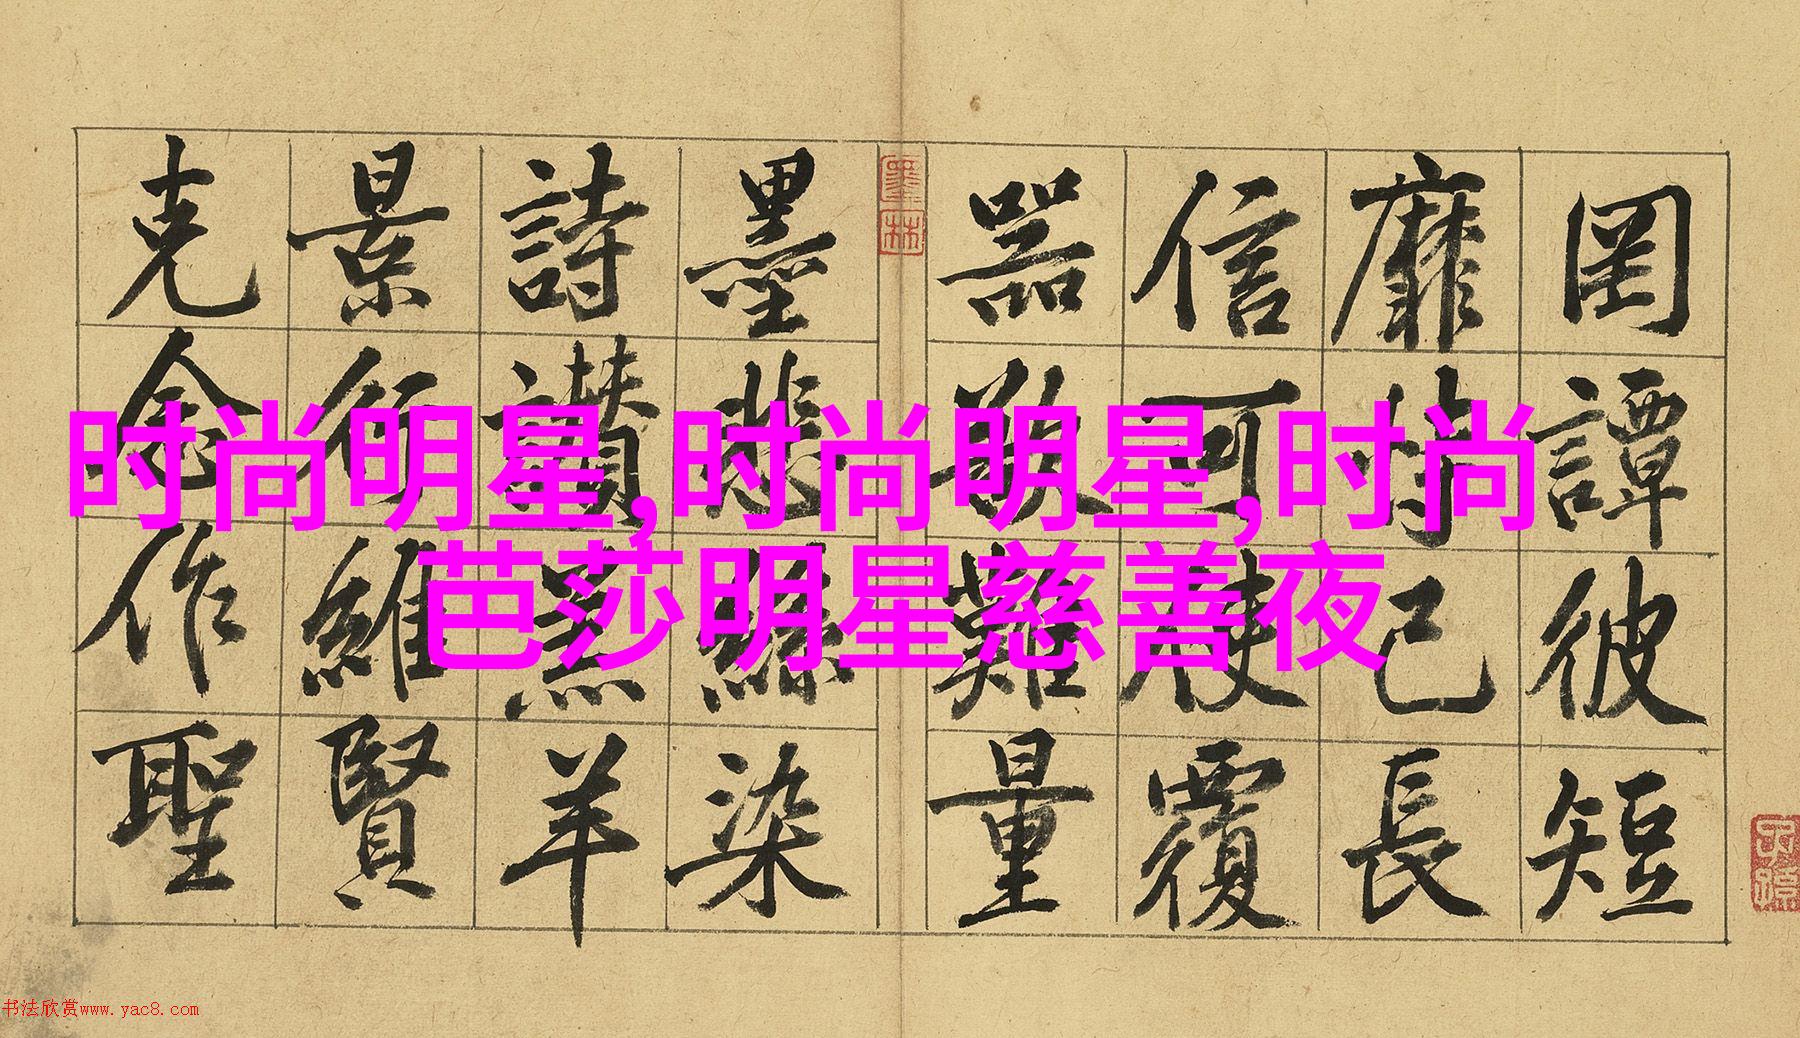 罔譚彼短
靡恃己長
信可使覆
器欲難量
墨悲絲染
詩讚羔羊
景行維賢
克念作聖
墨林
时尚明星,时尚明星,时尚
芭莎明星慈善夜
书法欣赏www.yac8.com